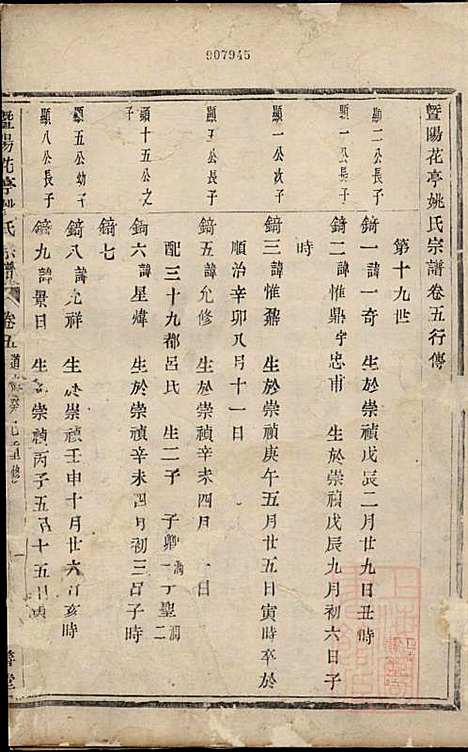 907945
暨陽花亭姚氏宗譜卷五行傳
第十九世
顯二公長子
錡一 諱一奇 生於崇禎戊辰二月廿九日丑時
顯一公長子
錡二 諱惟鼎 字忠甫 生於崇禎戊辰九月初六日子
時
顯一公次子
錡三 諱惟鼐 生於崇禎庚午五月廿五日寅時卒於
順治辛卯八月十一日
顯五公長子
錡五 諱允修 生於崇禎辛未四月 一日
配三十九都呂氏 生二子 子鄭一 丁聖二
顯十五公之
子
錡六 諱星煒 生於崇禎辛未四月初三日子時
錡七
顯五公幼子
錡八 諱允祥 生於崇禎壬申十月廿六日亥時
顯八公長子
錡九 諱景日 生於崇禎丙子五月十五日寅
暨陽花亭姚氏宗譜 卷五 道光癸巳重修
善堂